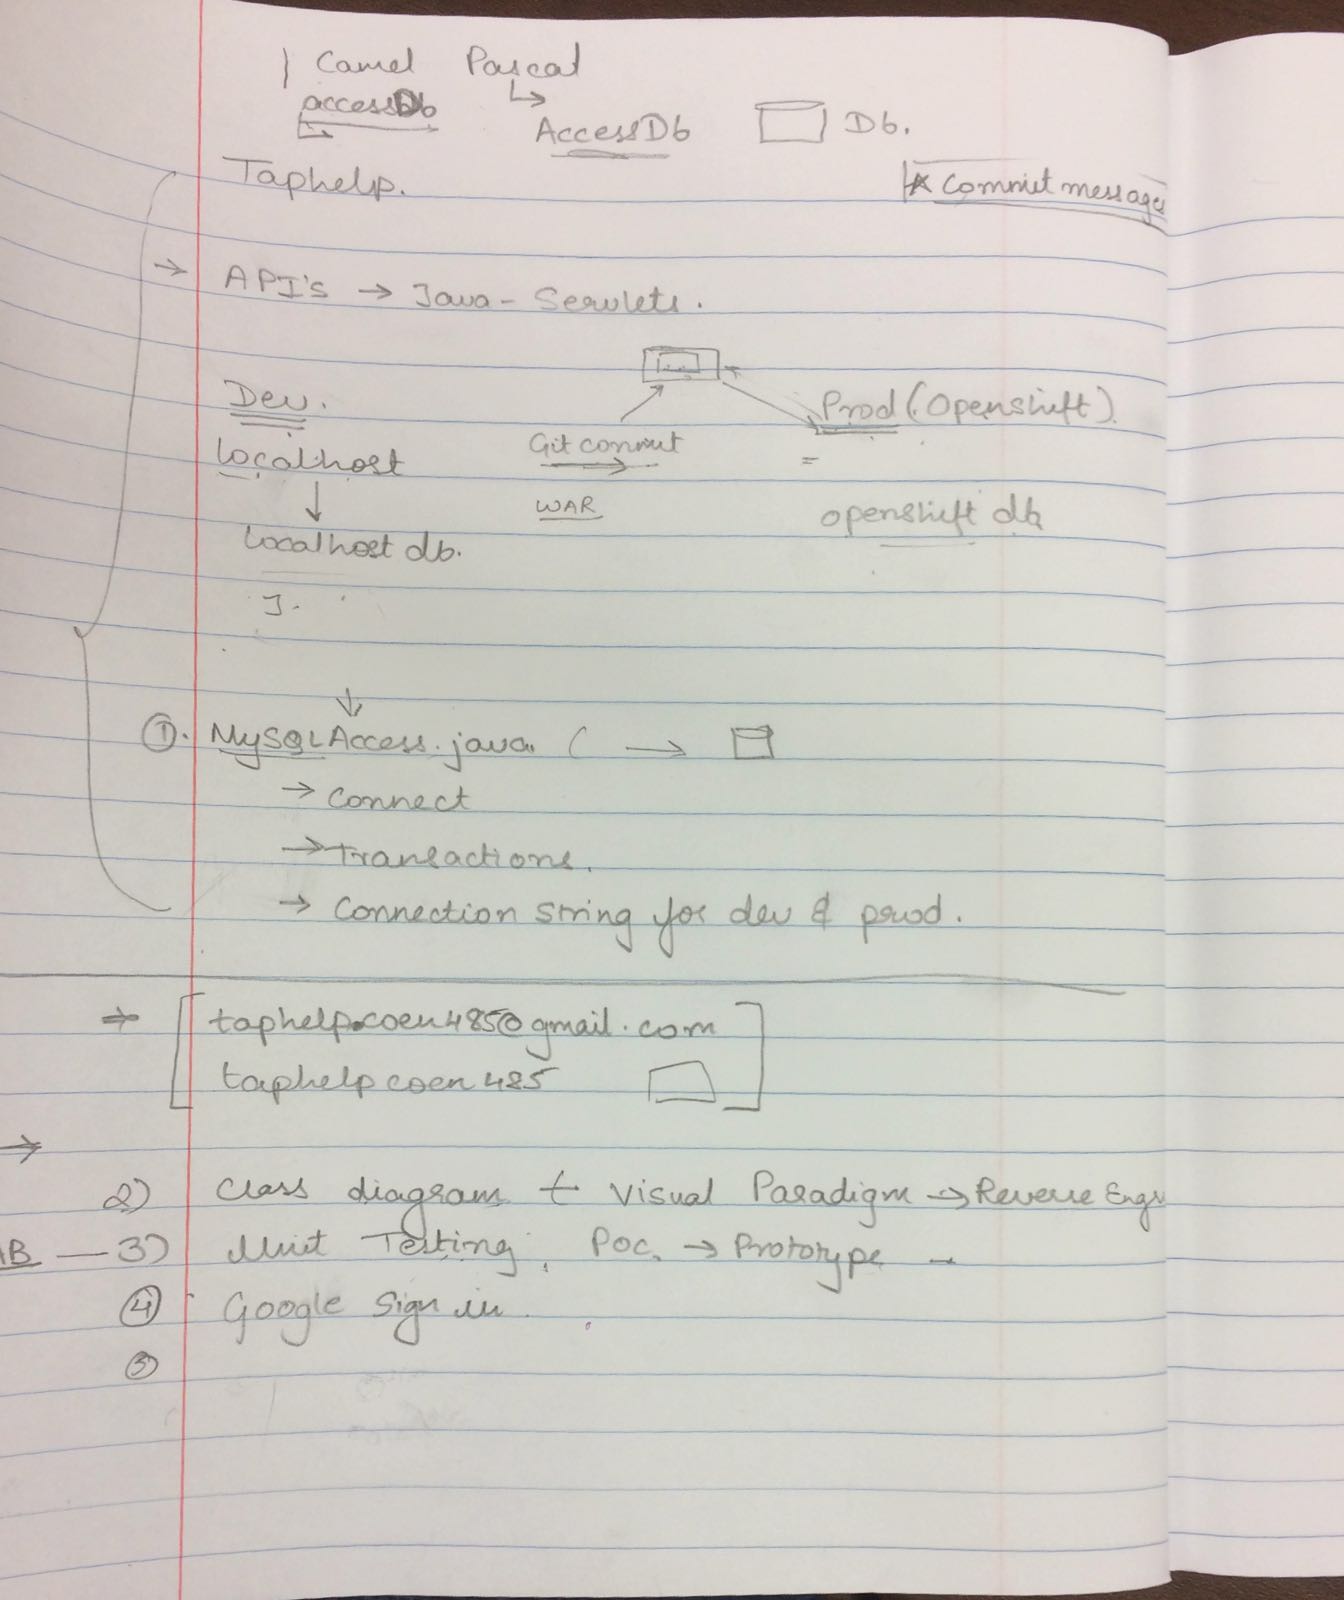 Camel Pascal
accessDb ↳
AccessDb Db.
Taphelp. * Commit messages
→ API's → Java - Servlets.
Dev. Prod (Openshift).
localhost Git commit =
↓ WAR openshift db
localhost db.
J.
↓
①. MySQLAccess.java ( →
→ Connect
→ Transactions.
→ Connection string for dev & prod.
→ taphelp.coen485@gmail.com
taphelpcoen485
→
2) Class diagram + Visual Paradigm → Reverse Engr
AB — 3) Unit Testing, POC. → Prototype —
④ Google Sign in.
⑤